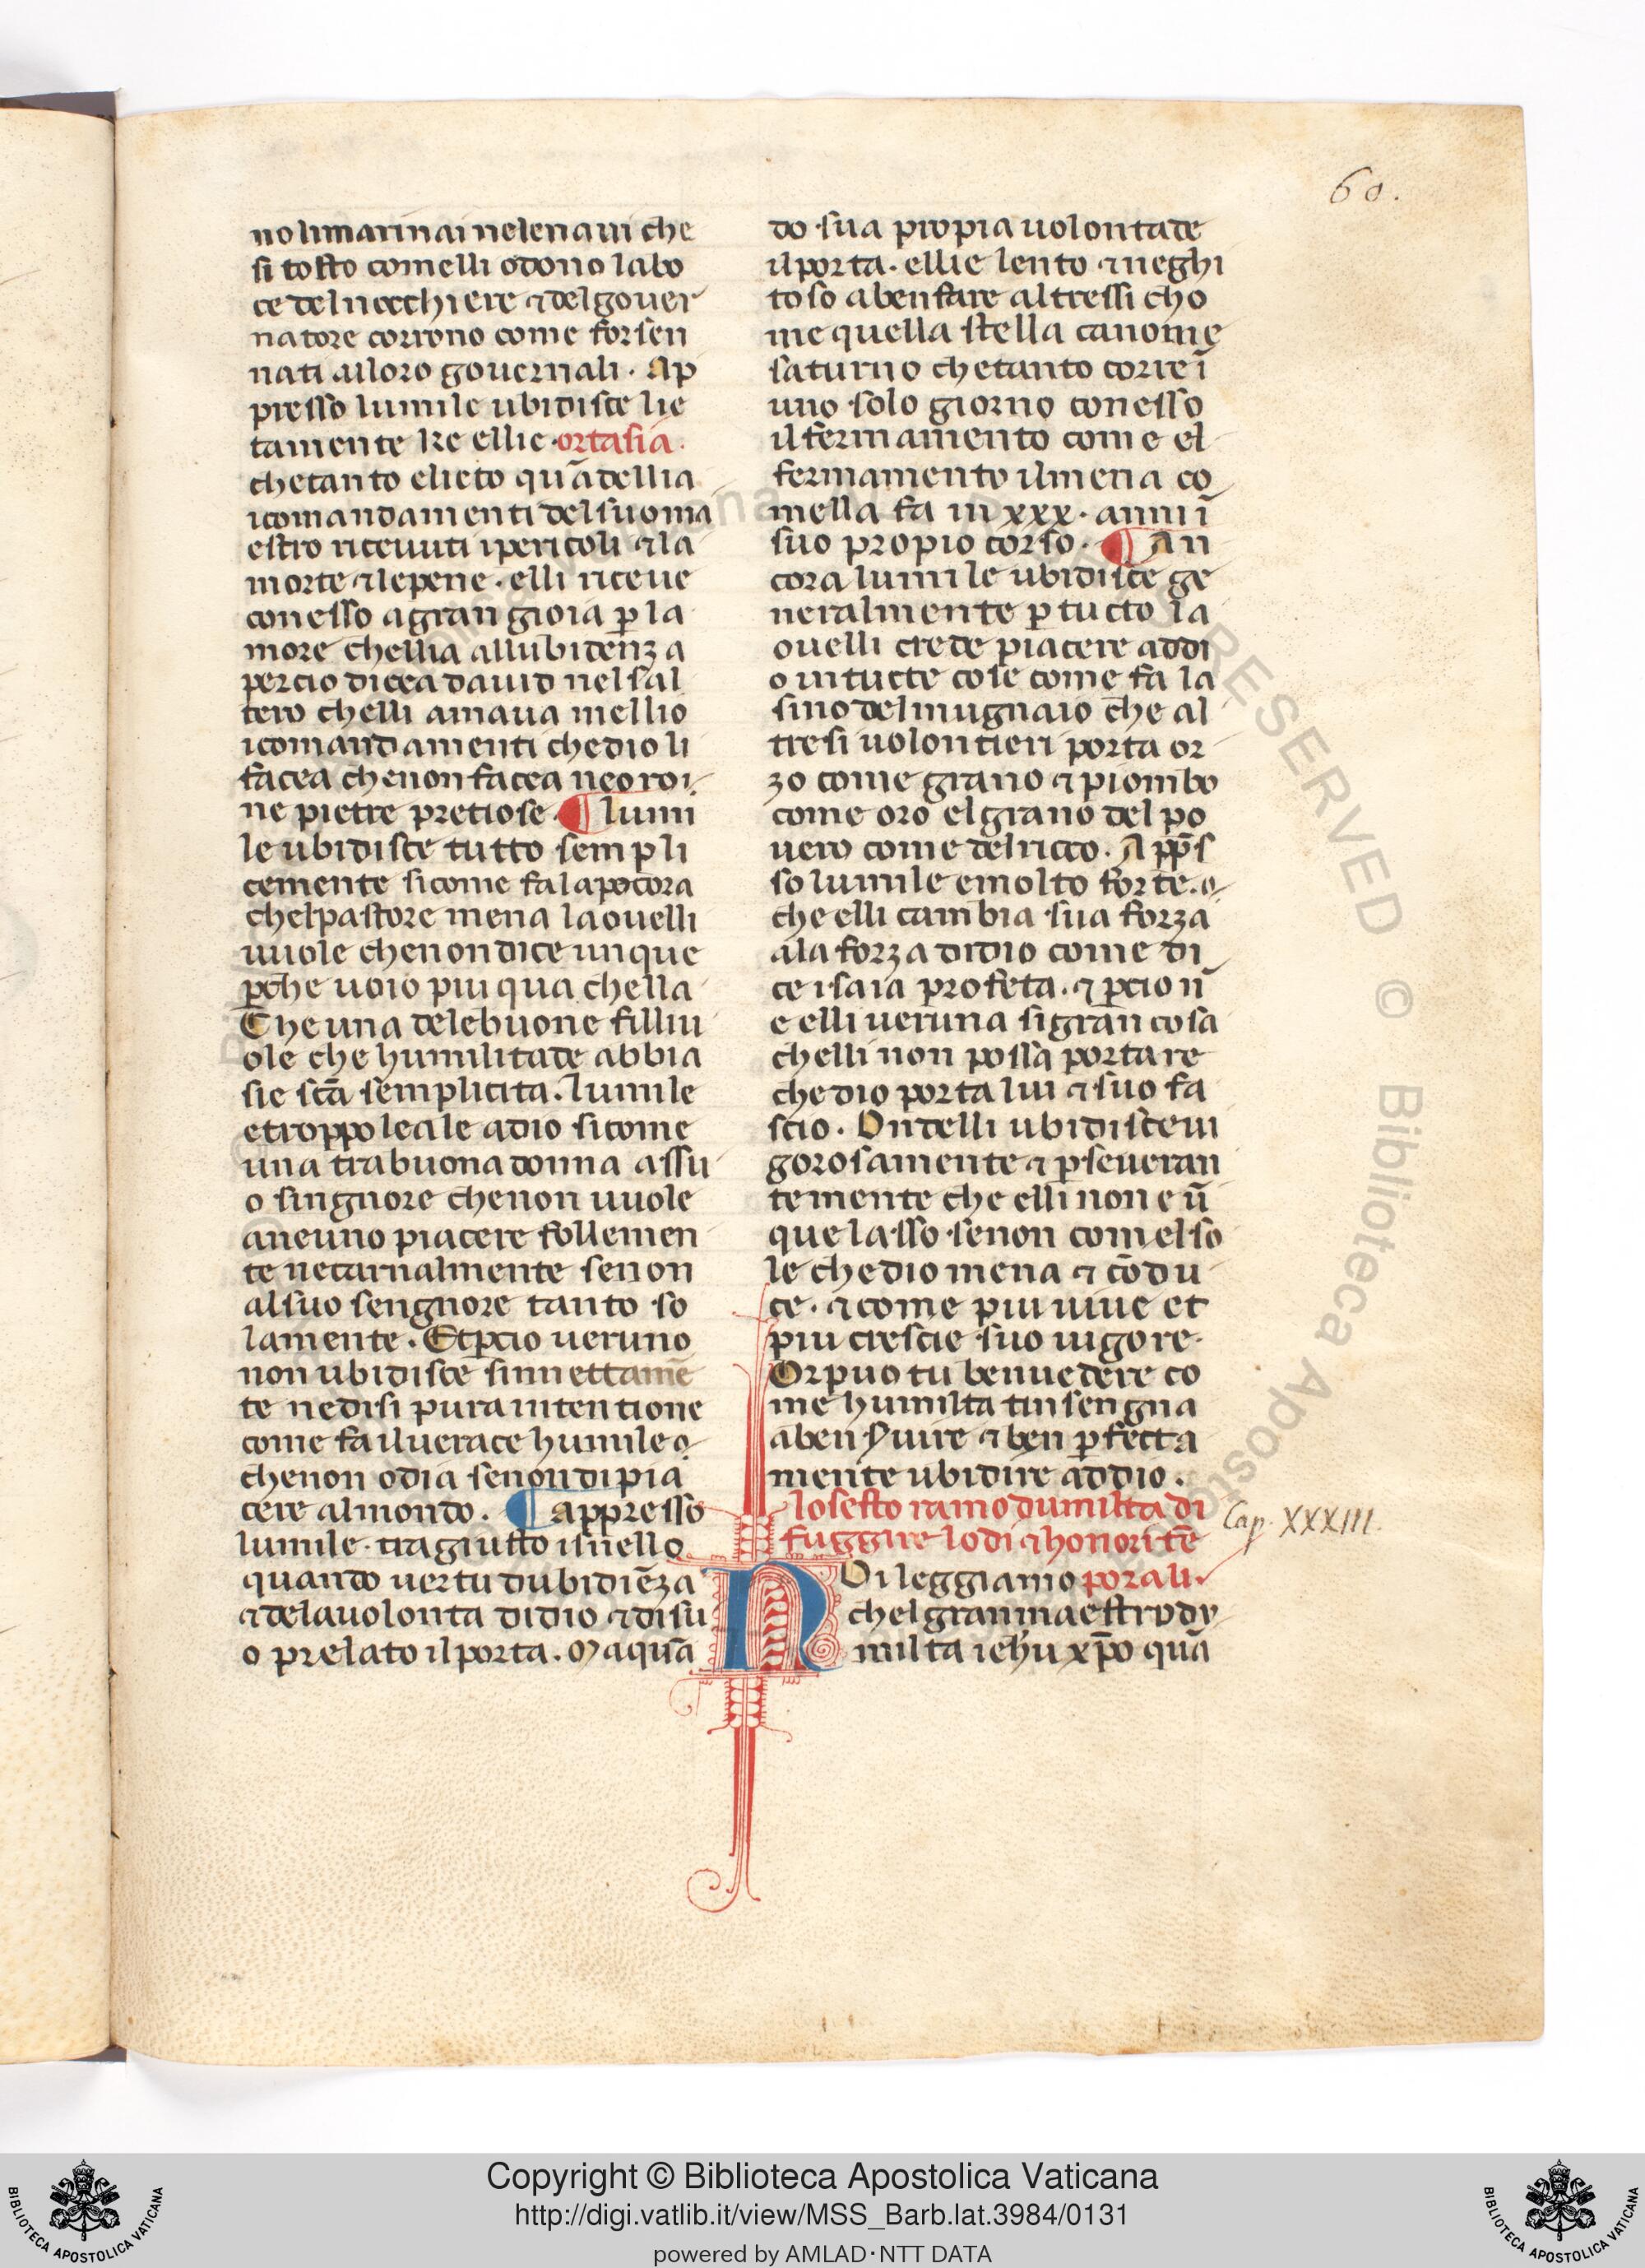 60.
no limarinai nelenaui che
si tosto comelli odono labo
ce del nocchiere ⁊ del gouer
natore corrono come forsen
nati alloro gouernali. Ap
presso lumile ubidisce lie
tamente ke ellie ortasia.
che tanto elieto quādellia
icomandamenti del suo ma
estro riceuuti ipericoli ⁊ la
morte ⁊ lepene. elli riceue
con esso a gran gioia ꝑ la
more chellia allubidenza
percio dicea dauid nel sal
tero chelli amaua mellio
icomandamenti che dio li
facea che non facea ne oro i
ne pietre pretiose. ¶ lumi
le ubidisce tutto sempli
cemente sicome fa la pocora
chel pastore mena la ouelli
uuole che non dice unque
ꝑche uoio piu qua chella
Che una dele buone filliu
ole che humilitade abbia
sie scā semplicita. lumile
e troppo leale a dio sicome
una tra buona donna assu
o singnore che non uuole
aneuno piacere follemen
te ne carnalmente se non
al suo sengnore tanto so
lamente. Et ꝑcio ueruno
non ubidisce si nnettamē
te ne di si pura intentione
come fa il uerace humile
che non odia se non di pia
cere al mondo. ¶ appresso
lumile tragiusto isnello
quando uertu dubidiēza
⁊ dela uolonta didio ⁊ di su
o prelato il porta. Ma quā
do sua propia uolontade
il porta. ellie lento ⁊ neghi
toso a ben fare altressi cho
me quella stella ca nome
saturno che tanto corre ī
uno solo giorno con esso
il fermamento come el
fermamento il mena co
mella fa in xxx. anni ī
suo propio corso. ¶ An
cora lumile ubidisce ge
neralmente ꝑ tucto la
ouelli crede piacere addi
o in tucte cose come fa la
sino del mugnaio che al
tresi uolontieri porta or
zo come grano ⁊ piombo
come oro el grano del po
uero come del ricco. Appͤs
so lumile e molto forte.
che elli cambia sua forza
ala forza didio come di
ce isaia profeta. ⁊ ꝑcio nō
e elli ueruna si gran cosa
chelli non possa portare
che dio porta lui ⁊ suo fa
scio. Ondelli ubidisce ui
gorosamente ⁊ ꝑseueran
temente che elli non e ū
que lasso se non com el so
le che dio mena ⁊ cōdu
ce. ⁊ come piu uiue et
piu crescie suo uigore.
Or puo tu ben uedere co
me humilta tinsengna
a ben seruire ⁊ ben ꝑfecta
mente ubidire addio.
lo sesto ramo dumilta di
fuggire lodi ⁊ honori tē
porali.
Cap. XXXIII.
Noi leggiamo
chel gran maestro dv
milta iehu xp̄o quā
Copyright © Biblioteca Apostolica Vaticana
http://digi.vatlib.it/view/MSS_Barb.lat.3984/0131
powered by AMLAD·NTT DATA
BIBLIOTECA APOSTOLICA VATICANA
BIBLIOTECA APOSTOLICA VATICANA